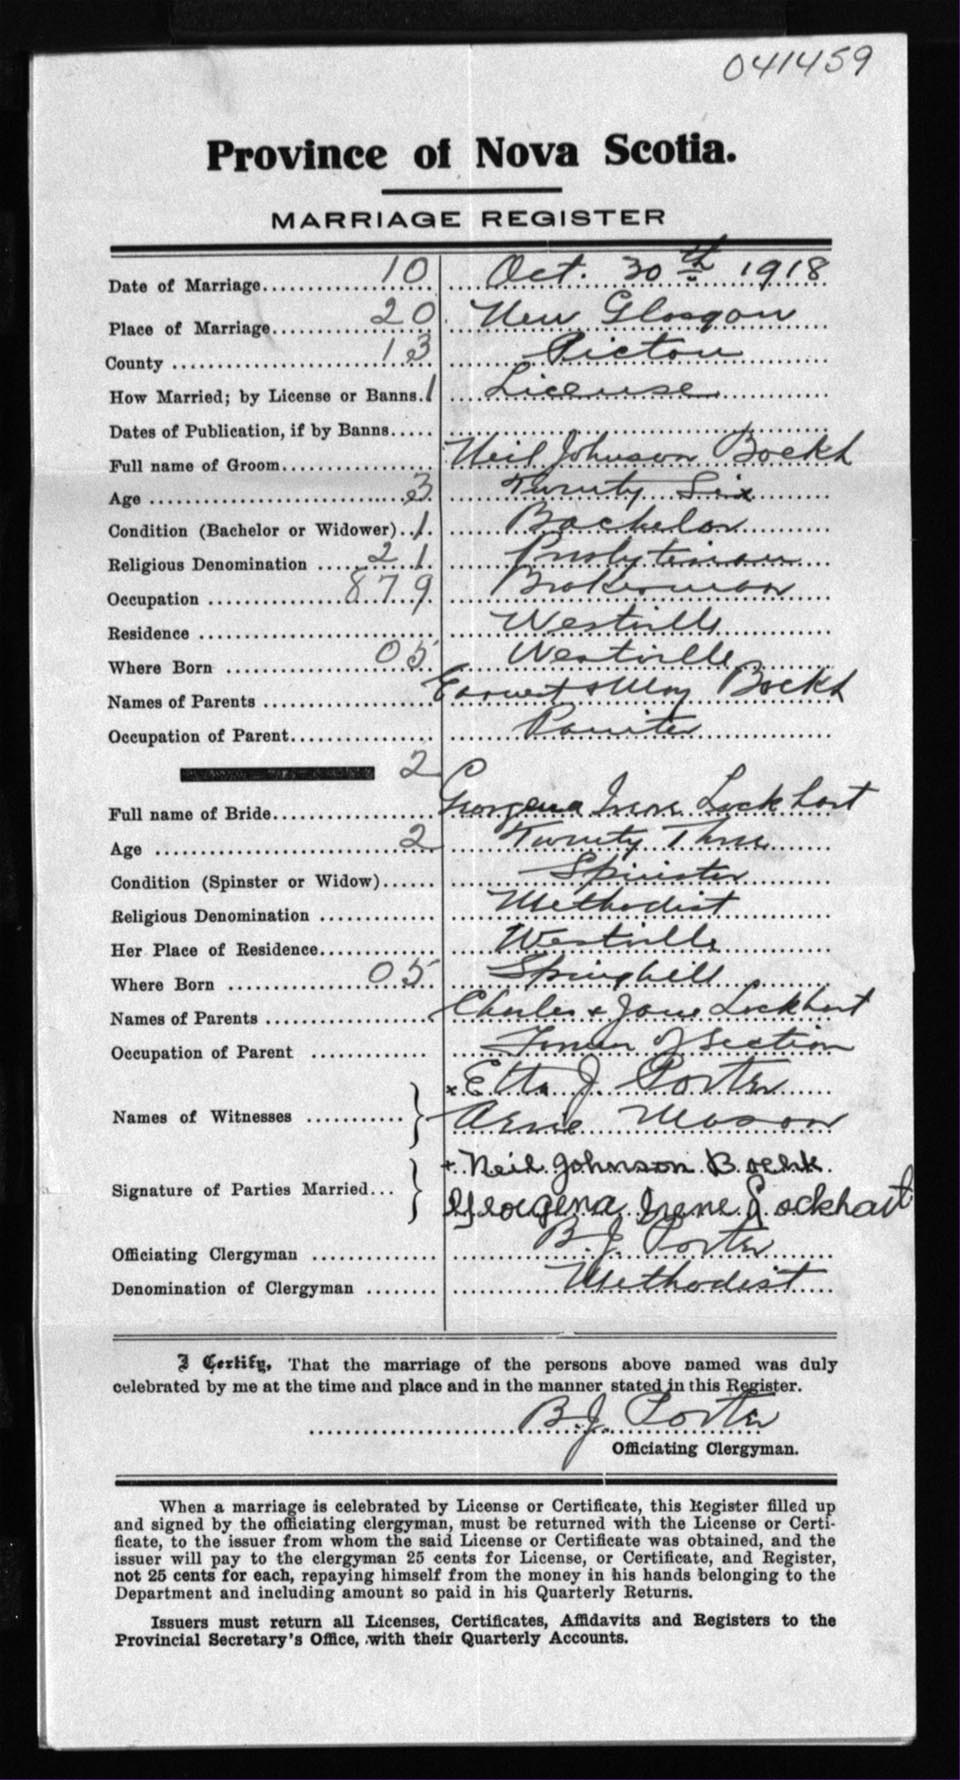 041459
Province of Nova Scotia.
MARRIAGE REGISTER
Date of Marriage 10 Oct. 30th 1918
Place of Marriage 20 New Glasgow
County 13 Pictou
How Married; by License or Banns. 1 License
Dates of Publication, if by Banns
Full name of Groom Neil Johnson Boehk
Age 3 Twenty Six
Condition (Bachelor or Widower) 1 Bachelor
Religious Denomination 21 Presbyterian
Occupation 879
Residence Westville
Where Born 05 Westville
Names of Parents Earnest & May Boehk
Occupation of Parent Painter
2
Full name of Bride Georgena Irene Lockhart
Age 2 Twenty Three
Condition (Spinster or Widow) Spinster
Religious Denomination Methodist
Her Place of Residence Westville
Where Born 05 Springhill
Names of Parents Charles & Jane Lockhart
Occupation of Parent of Section
x Etta J. Porter
Names of Witnesses
Mason
+ Neil Johnson Boehk.
Signature of Parties Married
Georgena Irene Lockhart
Officiating Clergyman B. J. Porter
Denomination of Clergyman Methodist
I Certify, That the marriage of the persons above named was duly
celebrated by me at the time and place and in the manner stated in this Register.
B. J. Porter
Officiating Clergyman.
When a marriage is celebrated by License or Certificate, this Register filled up
and signed by the officiating clergyman, must be returned with the License or Certi-
ficate, to the issuer from whom the said License or Certificate was obtained, and the
issuer will pay to the clergyman 25 cents for License, or Certificate, and Register,
not 25 cents for each, repaying himself from the money in his hands belonging to the
Department and including amount so paid in his Quarterly Returns.
Issuers must return all Licenses, Certificates, Affidavits and Registers to the
Provincial Secretary's Office, with their Quarterly Accounts.